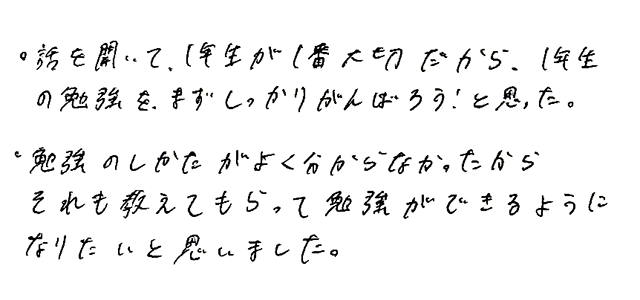 。話を聞いて、1年生が1番大切だから、1年生
の勉強を、まずしっかりがんばろう!と思った。
。勉強のしかたがよく分からなかったから
それも教えてもらって勉強ができるように
なりたいと思いました。